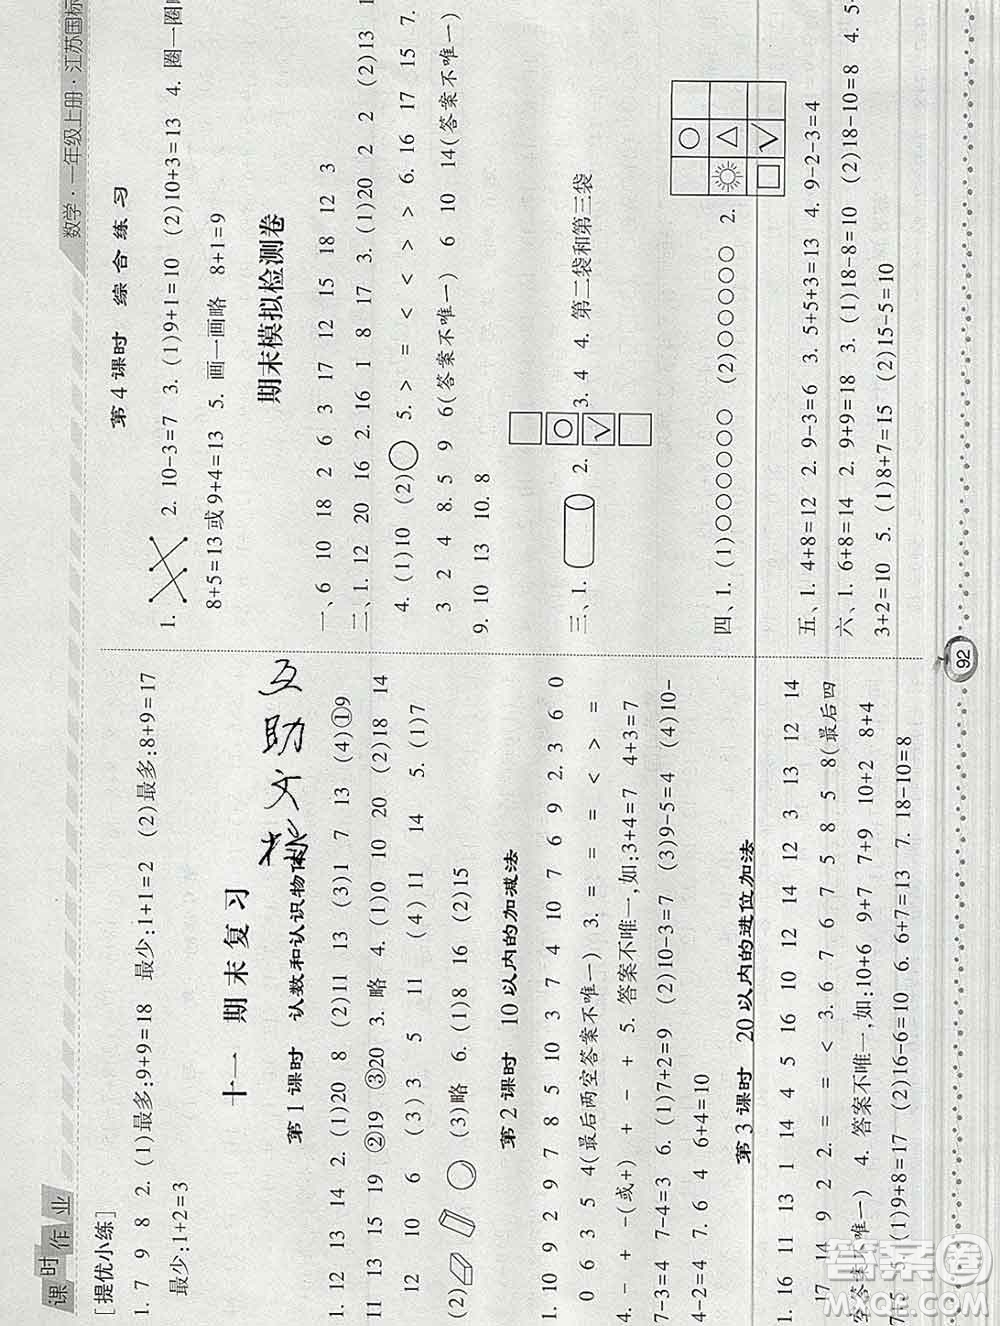 课时作业
数学·一年级上册·江苏国标
[提优小练]
1. 7 9 8 2. (1)最多:9+9=18 最少:1+1=2 (2)最多:8+9=17
最少:1+2=3
十一 期末复习
第1课时 认数和认识物体
1. 12 13 14 2. (1)20 8 (2)11 13 (3)1 7 13 (4)①9
11 13 15 19 ②19 ③20 3. 略 4. (1)0 10 20 (2)18 14
12 10 6 (3)3 5 11 (4)11 14 5. (1)7
(2) (3)略 6. (1)8 16 (2)15
第2课时 10以内的加减法
1. 10 9 2 9 7 8 5 10 3 7 4 10 7 6 9 2. 3 6 0
0 6 3 5 4(最后两空答案不唯一) 3. = = = < > =
4. - + + -(或+) + - + 5. 答案不唯一,如:3+4=7 4+3=7
7-3=4 7-4=3 6. (1)7+2=9 (2)10-3=7 (3)9-5=4 (4)10-
4-2=4 7. 6 4 6+4=10
第3课时 20以内的进位加法
1. 16 11 13 1 14 4 5 16 10 12 14 12 3 13 12 14
17 14 9 2 2. = = < 3. 6 7 6 7 5 8 5 8(最后四
空答案不唯一) 4. 答案不唯一,如:10+6 9+7 7+9 10+2 8+4
(1)9+8=17 (2)16-6=10 6. 6+7=13 7. 18-10=8
互助
第4课时 综合练习
1. 2. 10-3=7 3. (1)9+1=10 (2)10+3=13 4. 圈一圈略
8+5=13或9+4=13 5. 画一画略 8+1=9
期末模拟检测卷
一、6 10 18 2 6 3 17 12 15 18 12 3
二、1. 12 20 16 2. 16 1 8 17 3. (1)20 2 2 (2)13 1
4. (1)10 (2)○ 5. > = < < > > 6. 16 17 15 7.
3 2 4 8. 5 9 6(答案不唯一) 6 10 14(答案不唯一)
9. 10 13 10. 8
三、1. 2. ○ √ 3. 4 4. 第二袋和第三袋
四、1. (1)○○○○○○○ (2)○○○○○○ 2. ○ △ √
五、1. 4+8=12 2. 9-3=6 3. 5+5+3=13 4. 9-2-3=4
六、1. 6+8=14 2. 9+9=18 3. (1)18-8=10 (2)18-10=8 4. 5
3+2=10 5. (1)8+7=15 (2)15-5=10
92
答案圈
MXQE.COM